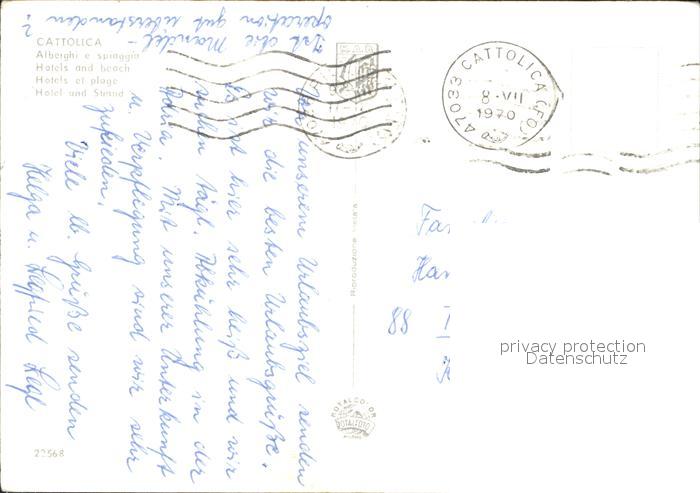 CATTOLICA
Alberghi e spiaggia
Hotels and beach
Hotels et plage
Hotel und Strand
47033 CATTOLICA (FO)
8-VII
1970
Von unserem Urlaubsziel senden
wir die besten Urlaubsgrüße.
Es ist hier sehr heiß und wir
suchen tägl. Abkühlung in der
Adria. Mit unserer Unterkunft
u. Verpflegung sind wir sehr
zufrieden.
Viele lb. Grüße senden
Helga u. Siegfried
Ist die Mandel-
operation gut überstanden?
Fa
Ha
88
Riproduzione vietata
ROTALCOLOR
ROTALFOTO
MILANO
privacy protection
Datenschutz
22568